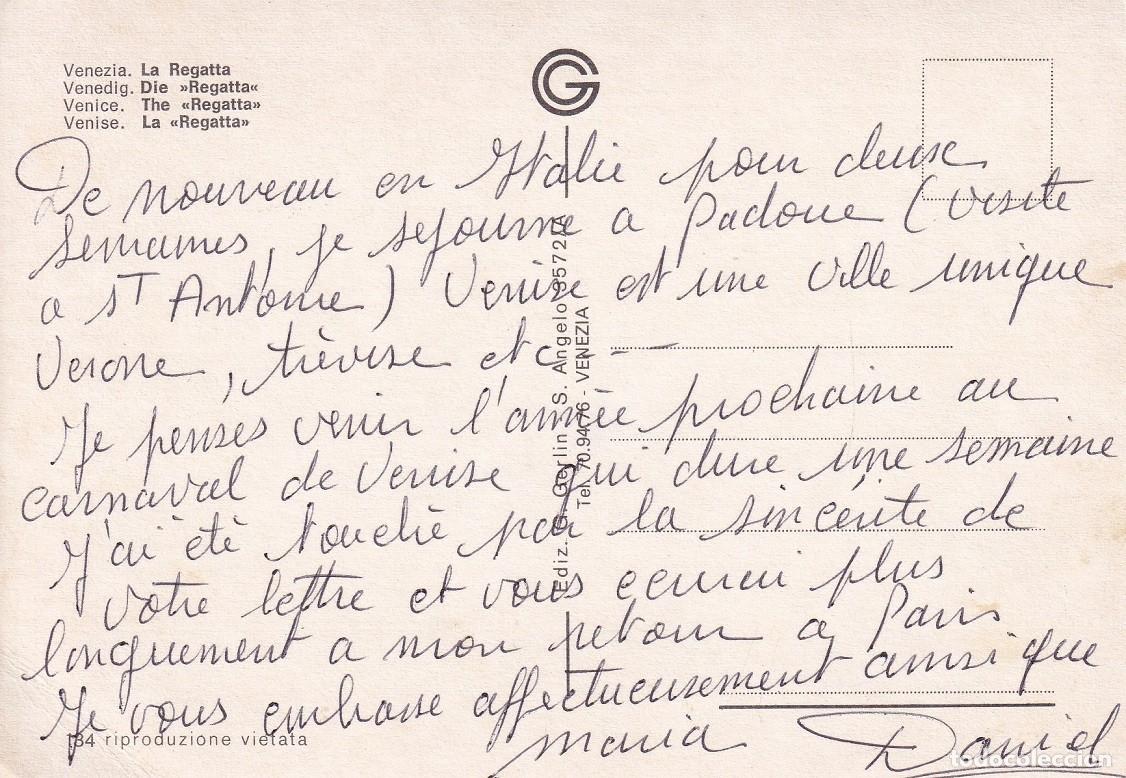 Venezia. La Regatta
Venedig. Die »Regatta«
Venice. The «Regatta»
Venise. La «Regatta»
G
De nouveau en Italie pour deux
semaines, je sejourne a Padoue (visite
a sT Antoine) Venise est une ville unique
Verone, trèvise etc...
Je penses venir l'année prochaine au
carnaval de Venise qui dure une semaine
J'ai été touché par la sincérité de
votre lettre et vous ecrirai plus
longuement a mon retour a Paris
Je vous embrasse affectueusement ainsi que
maria Daniel
Ediz. G. Gerlin S. Angelo 3572/A
Tel. 70.94.76 - VENEZIA
184 riproduzione vietata
todocoleccion